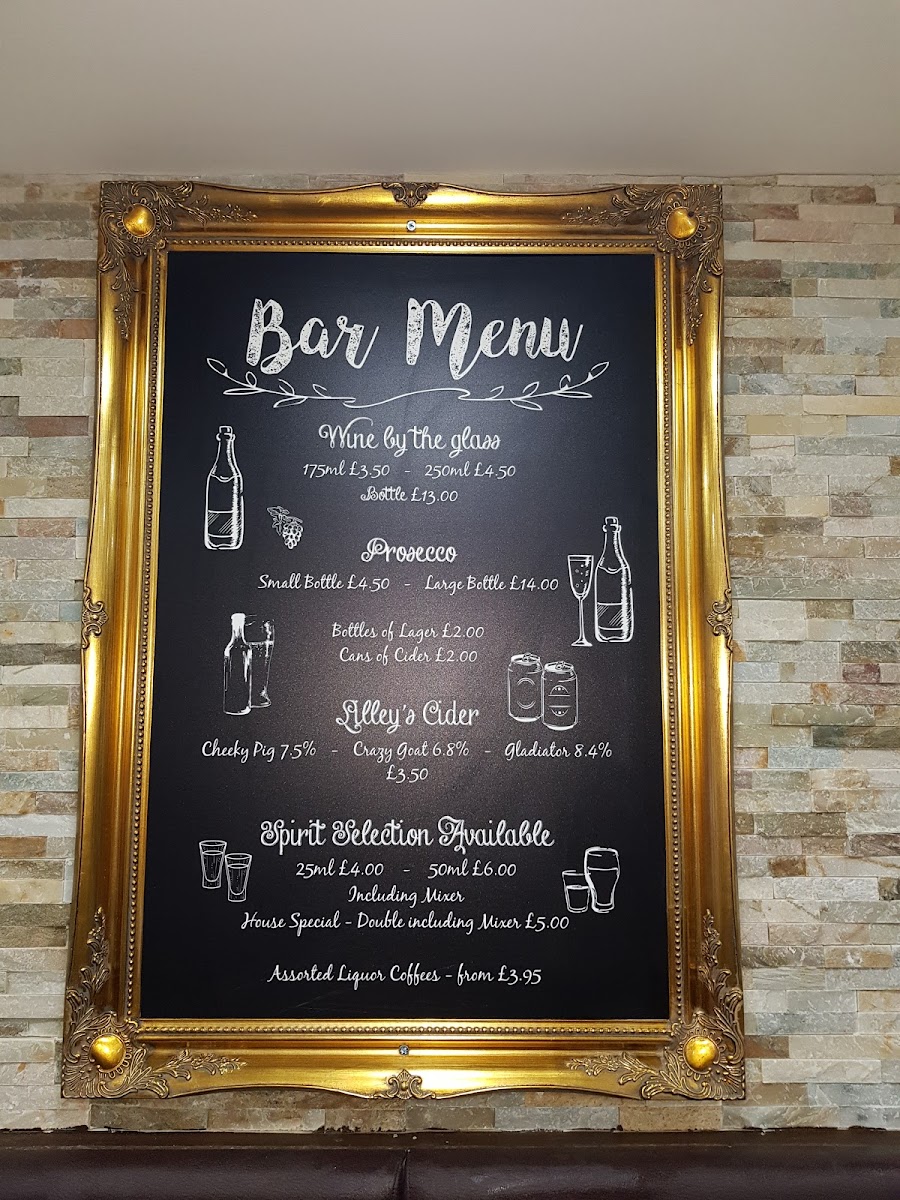 Bar Menu
Wine by the glass
175ml £3.50 - 250ml £4.50
Bottle £13.00
Prosecco
Small Bottle £4.50 - Large Bottle £14.00
Bottles of Lager £2.00
Cans of Cider £2.00
Alley's Cider
Cheeky Pig 7.5% - Crazy Goat 6.8% - Gladiator 8.4%
£3.50
Spirit Selection Available
25ml £4.00 - 50ml £6.00
Including Mixer
House Special - Double including Mixer £5.00
Assorted Liquor Coffees - from £3.95